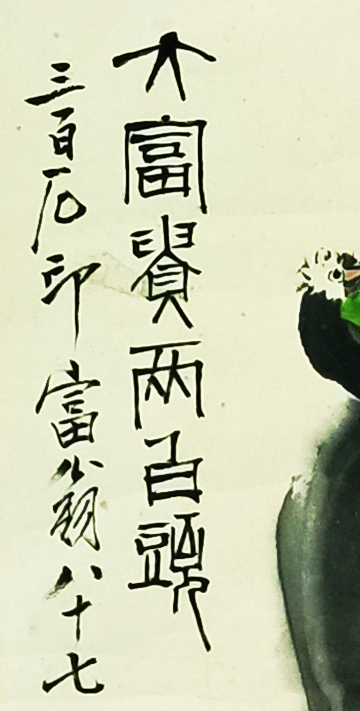 大富貴兩百頭
三百石印富翁八十七